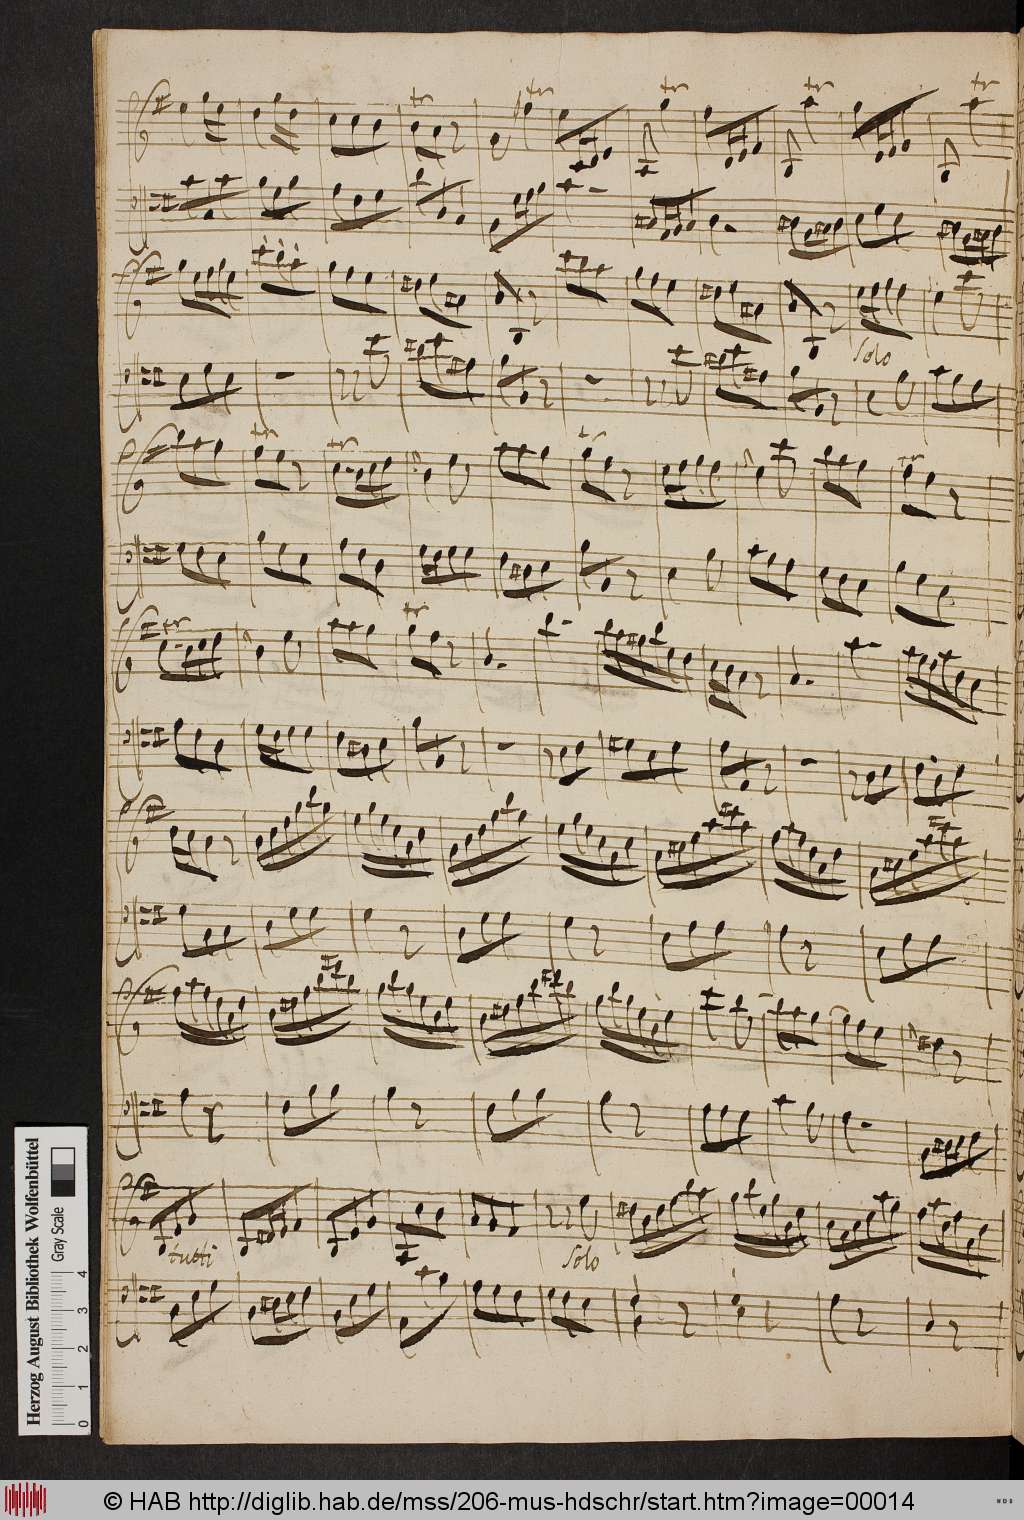 tr tr tr tr tr
Solo
tr tr tr tr
tr tr
tutti Solo
Herzog August Bibliothek Wolfenbüttel
Gray Scale
0 1 2 3 4
© HAB http://diglib.hab.de/mss/206-mus-hdschr/start.htm?image=00014